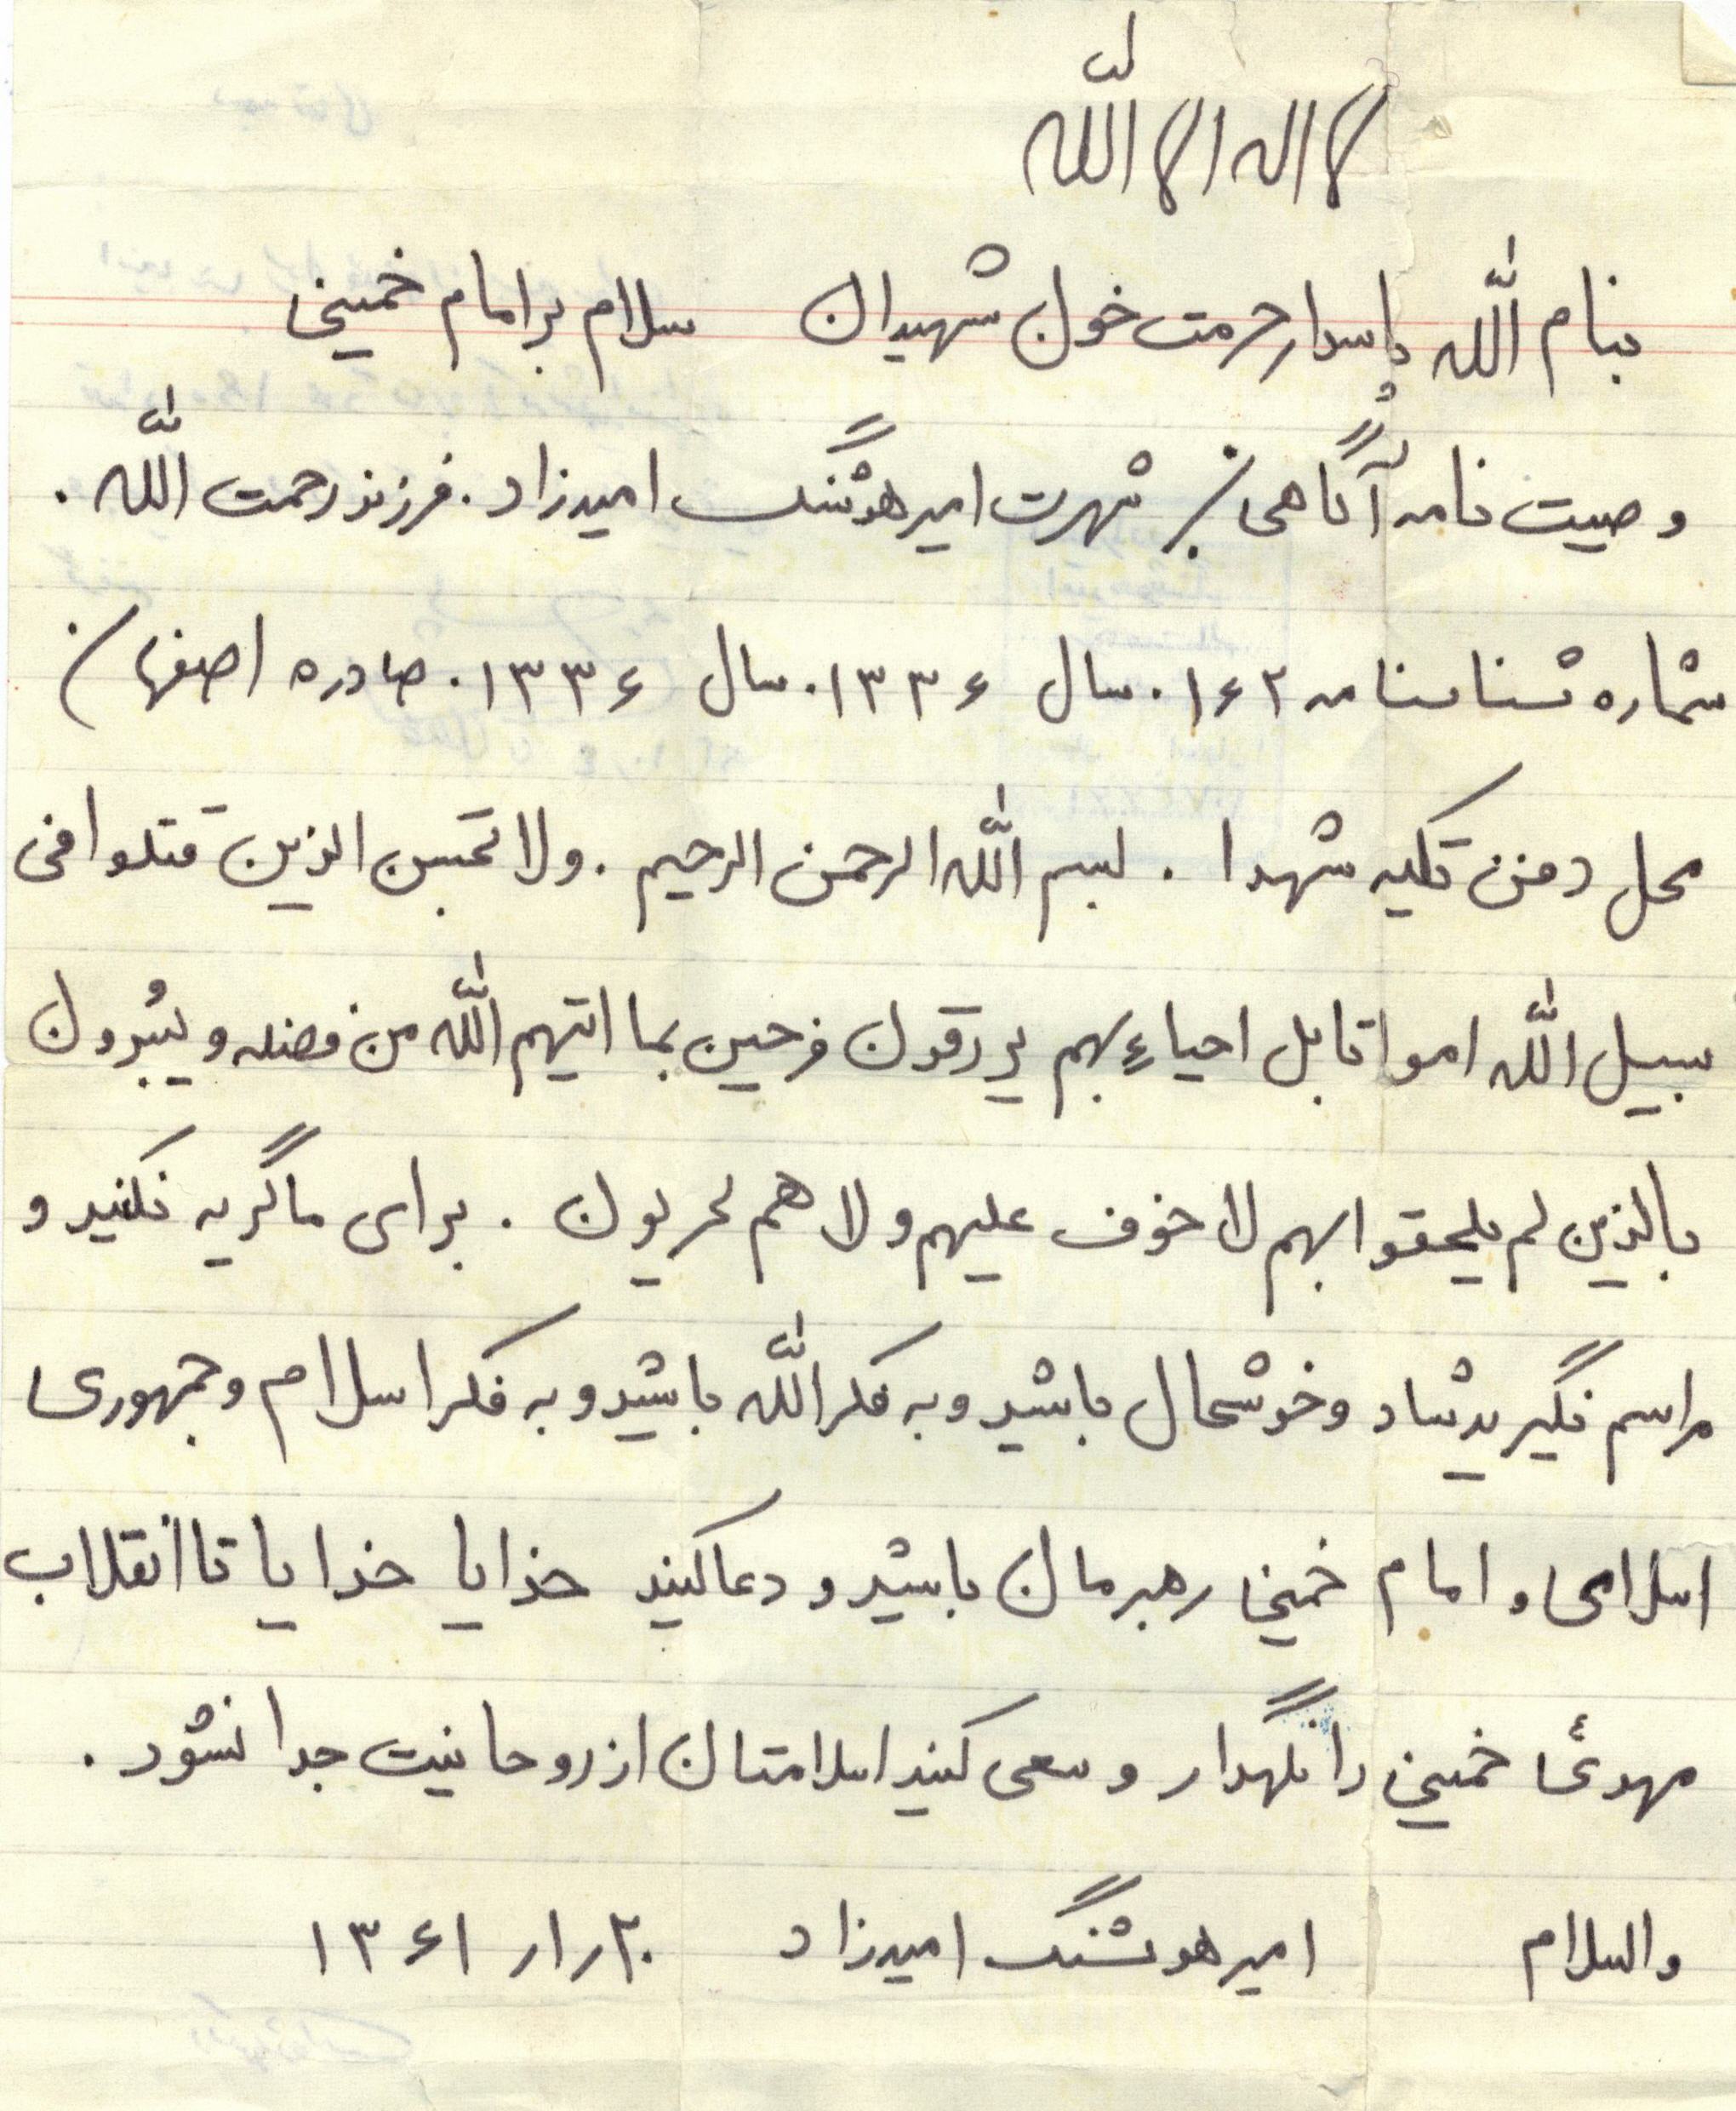 لا اله الا الله
بنام الله پاسدار حرمت خون شهیدان سلام بر امام خمینی
وصیت نامه آگاهی / شهرت امیر هوشنگ امیرزاد . فرزند رحمت الله .
شماره شناسنامه ۱۶۲ . سال ۱۳۳۶ . سال ۱۳۳۶ . صادره اصفهان
محل دفن تکیه شهدا . بسم الله الرحمن الرحیم . ولا تحسبن الذین قتلوا فی
سبیل الله امواتا بل احیاءِ بهم یرزقون فرحین بما اتیهم الله من فضله و یسُبرون
بالذین لم یلحقوا بهم لا خوف علیهم ولا هم یحریون . برای ما گریه نکنید و
مراسم نگیرید شاد و خوشحال باشید و به فکر الله باشید و به فکر اسلام و جمهوری
اسلامی و امام خمینی رهبرمان باشید و دعا کنید خدایا خدایا تا انقلاب
مهدئ خمینی را نگهدار و سعی کنید اسلامتان از روحانیت جدا نشود .
والسلام امیر هوشنگ امیرزاد ۲۰/۱/۱۳۶۱